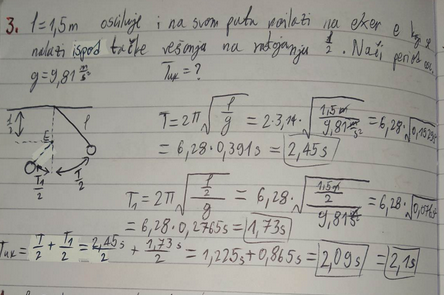 3. l=1,5m osciluje i na svom putu nailazi na ekser e koji se
nalazi ispod tačke vešanja na rastojanju l/2. Naći period
g=9,81 m/s² Tuk=?
l/2 l
E
T1/2 T/2
T=2π√(l/g) = 2·3,14·√(1,5m/9,81m/s²) = 6,28·√0,1529
= 6,28·0,391s = 2,45s
T1=2π√((l/2)/g) = 6,28·√((1,5m/2)/9,81) = 6,28·
= 6,28·0,2765s = 1,73s
Tuk = T/2 + T1/2 = 2,45s/2 + 1,73s/2 = 1,225s+0,865s = 2,09s = 2,1s